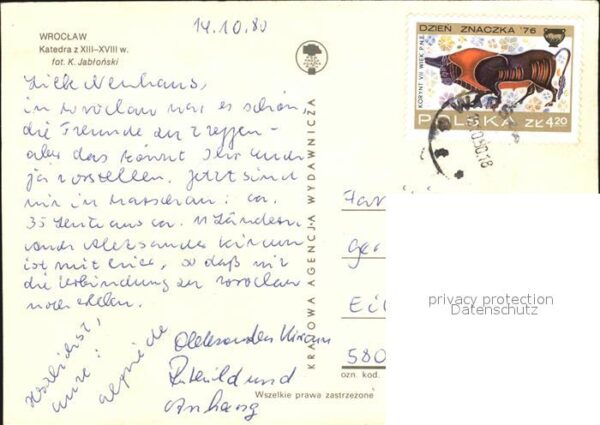 14.10.80
WROCŁAW
Katedra z XIII-XVIII w.
fot. K. Jabłoński
in Wroclaw war es schön,
die Freunde zu treffen -
aber das könnt Ihr Euch
ja vorstellen. Jetzt sind
wir in Warschau: ca.
35 Leute aus ca. 11 Ländern.
ist mit hier, so daß wir
die Verbindung zu Wroclaw
Herzlichst,
Eure:
Aleksander
und
Anhang
KRAJOWA AGENCJA WYDAWNICZA
DZIEŃ ZNACZKA '76
KORYNT VII WIEK P.N.E.
POLSKA ZŁ 4,20
Fam
Ei
580
ozn. kod.
Wszelkie prawa zastrzeżone
privacy protection
Datenschutz